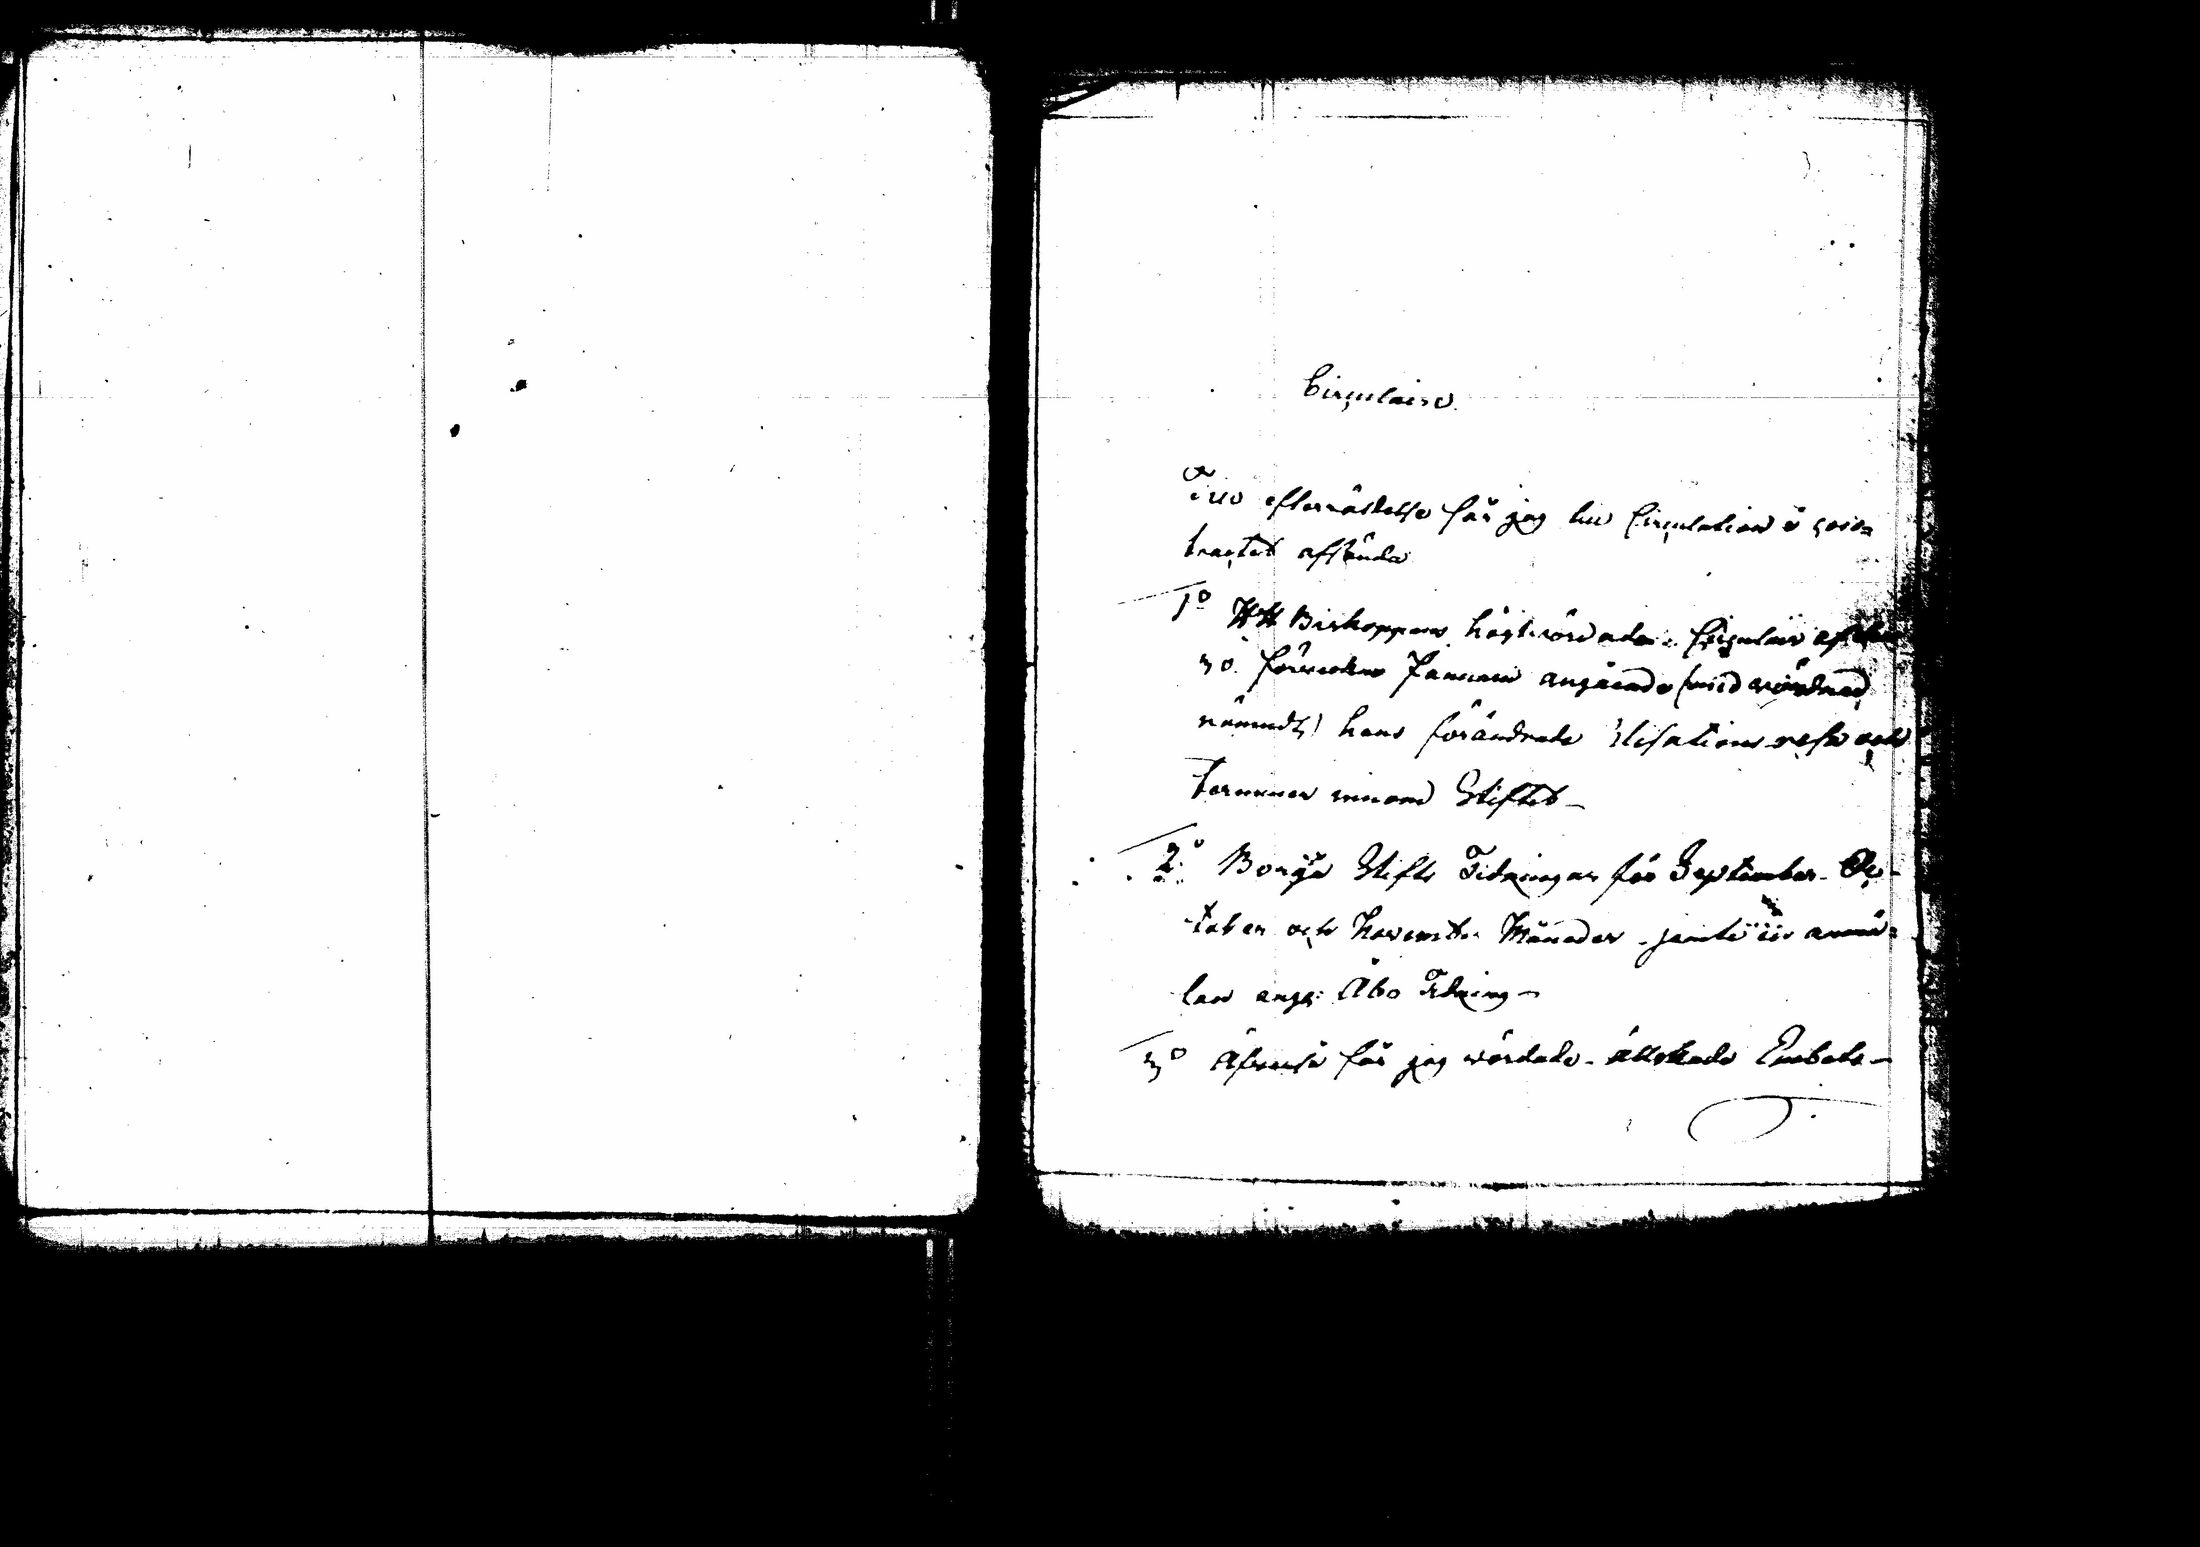 Circulaire.
Till efterrättelse får jag till Circulation i con-
tractet afsända
1o HH Biskoppens högtvördade Circulair af den
30 förvekne Januari angående (med vördnad
nämndt) hans förändrade Visitations resa och
termner innom Stiftet –
2o Borgå Stifts Tidningar för September – Oc-
tober och November Månader – jemte anmä-
lan ang: Åbo Tidning –
3o Äfvenså får jag vördade – älskade Embets –